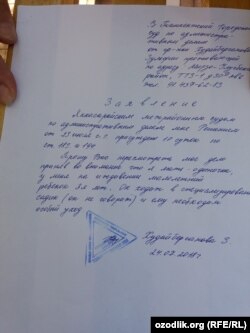 В Ташкентский городской
суд по административным
делам
от гр-ки Худайбергановой
Заявление
Яккасарайским межрайонным судом
по административным делам мне Решением
от 23 июля с.г. присуждено 10 суток по
ст. 183 и 194
Прошу Вас пересмотреть мое дело
приняв во внимание что я мать одиночка,
у меня на иждивении малолетний
ребенок 3х лет. Он ходит в специализированный
садик (он не говорит) и ему необходим
особый уход
Худайберганова З
24.07.2018г
ozodlik.org (RFE/RL)